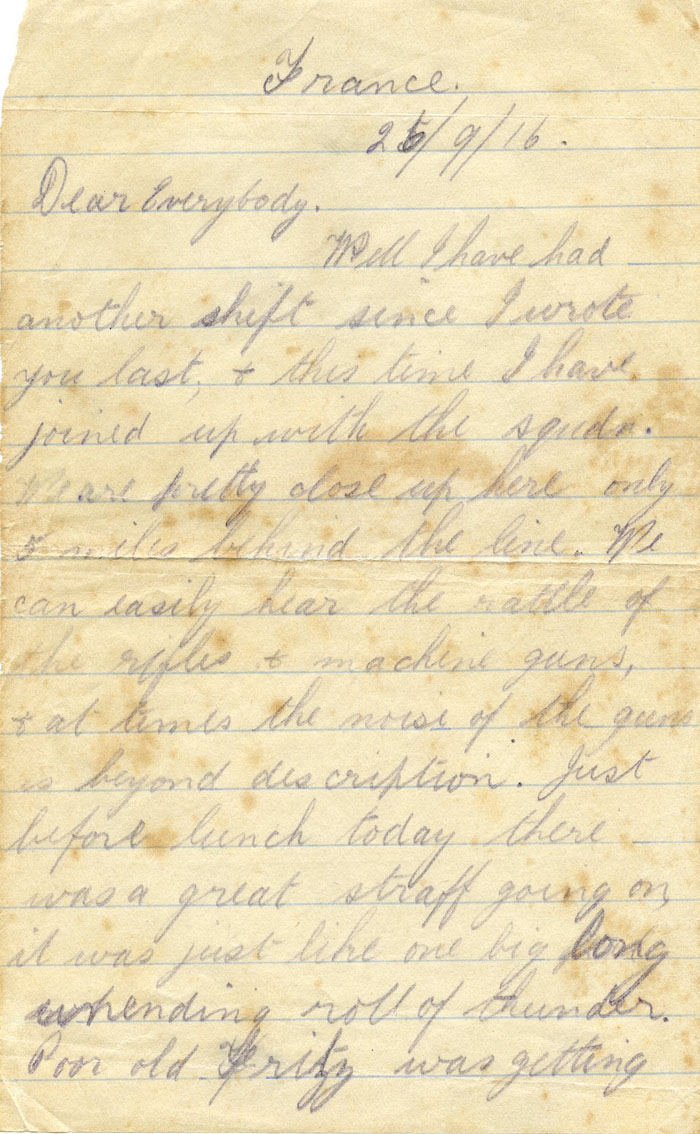 France.
26/9/16.
Dear Everybody.
Well I have had
another shift since I wrote
you last, & this time I have
joined up with the squdn.
We are pretty close up here only
5 miles behind the line. We
can easily hear the rattle of
the rifles & machine guns,
& at times the noise of the guns
is beyond description. Just
before lunch today there
was a great straff going on,
it was just like one big long
unending roll of thunder.
Poor old Fritz was getting